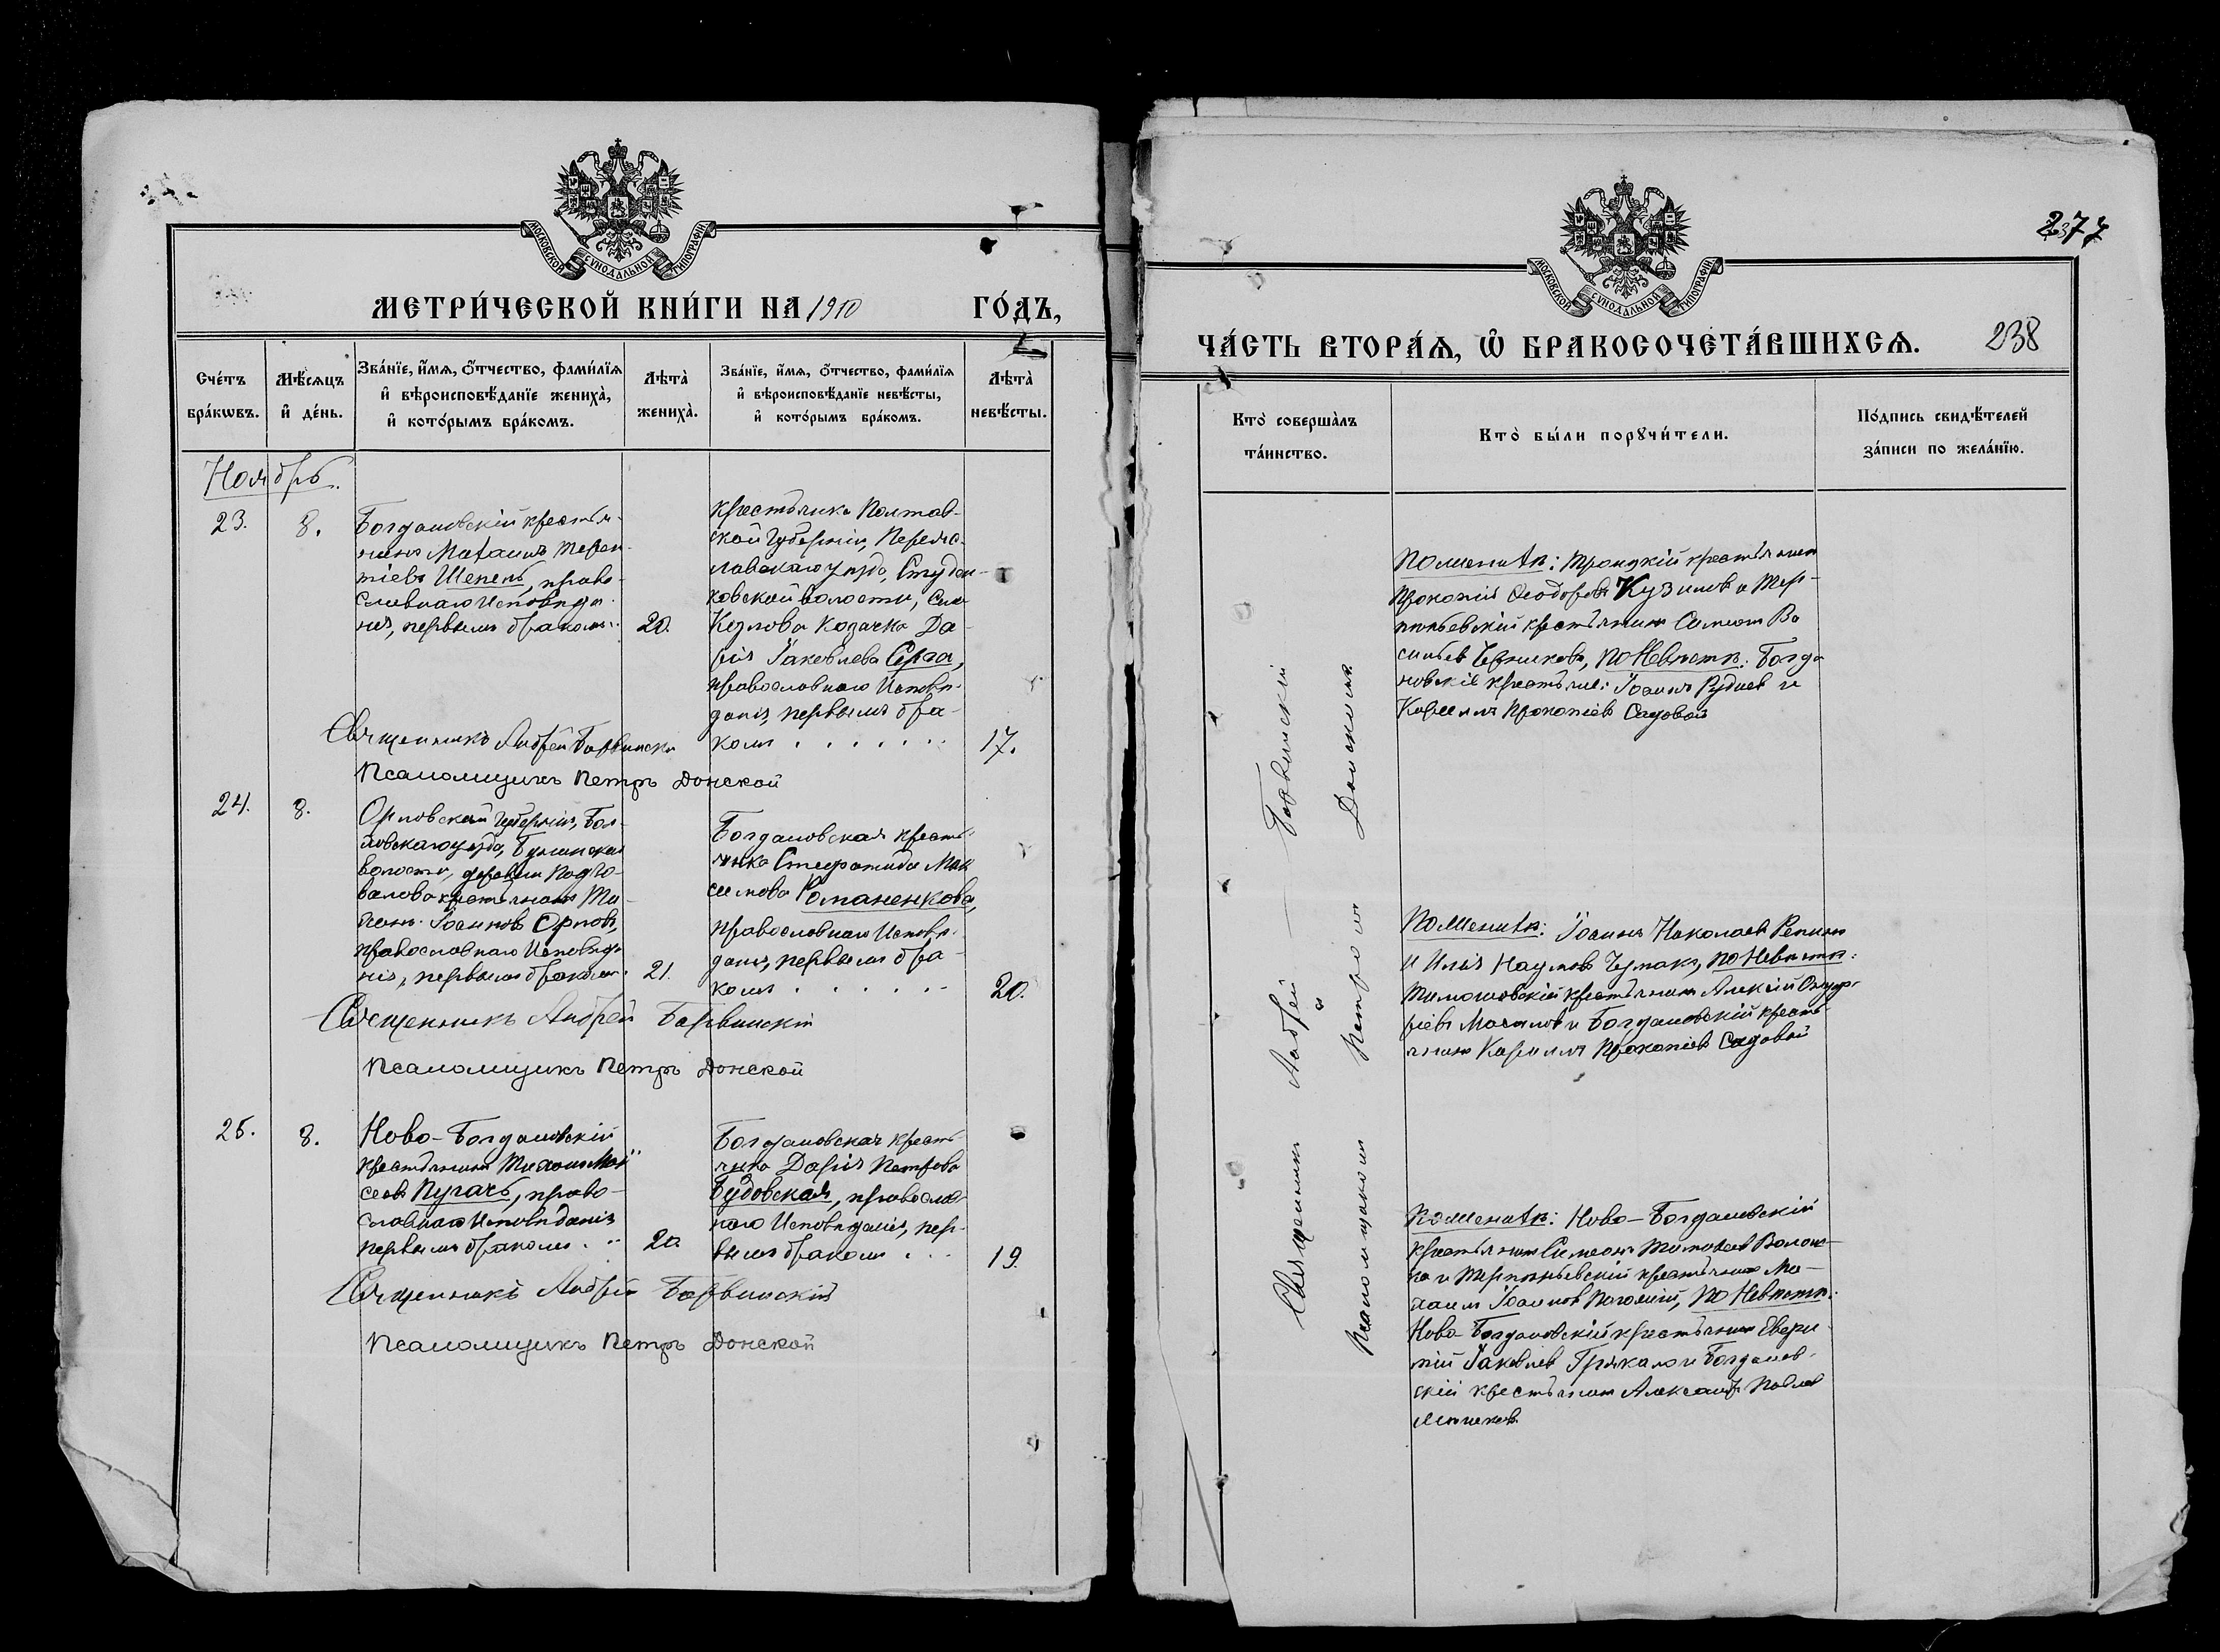 МОСКОВСКОЙ СѴНОДАЛЬНОЙ ТИПОГРАФІИ
МЕТРИ́ЧЕСКОЙ КНИ́ГИ НА 1910 ГО́ДЪ,
Сче́тъ бра́кωвъ.
Мѣ́сѧцъ и҆ де́нь.
Зва́нїе, и҆́мѧ, ѻ҆́тчество, фами́лїѧ
и҆ вѣроисповѣ́данїе жениха̀,
и҆ кото́рымъ бра́комъ.
Лѣта̀ жениха̀.
Зва́нїе, и҆́мѧ, ѻ҆́тчество, фами́лїѧ
и҆ вѣроисповѣ́данїе невѣ́сты,
и҆ кото́рымъ бра́комъ.
Лѣта̀ невѣ́сты.
Ноябрь.
23.
8.
Богдановскій крестья-
нинъ Михаилъ Терен-
тіевъ Шепель, право-
славнаго Исповѣда-
нія, первымъ бракомъ.
20.
крестьянка Полтав-
ской Губерніи, Переяс-
лавскаго уѣзда, Студен-
ковской волости, Села
Козлова Козачка Да-
рія Іаковлева Серга,
православнаго Исповѣ-
данія, первымъ бра-
комъ
17.
Священникъ Андрей Барвинскій
Псаломщикъ Петръ Донской
24.
8.
Орловской Губерніи, Бол-
ховскаго уѣзда,
волости, деревни
крестьянинъ Ти-
хонъ Іоанновъ Орловъ,
православнаго Исповѣда-
нія, первымъ бракомъ.
21.
Богдановская кресть-
янка Стефанида Мак-
симова Романенкова,
православнаго Исповѣ-
данія, первымъ бра-
комъ
20.
Священникъ Андрей Барвинскій
Псаломщикъ Петръ Донской
25.
8.
Ново-Богдановскій
крестьянинъ Тихонъ Мои-
сеевъ Пугачъ, право-
славнаго Исповѣданія
первымъ бракомъ
20.
Богдановская кресть-
янка Дарія Петрова
Будовская, православ-
наго Исповѣданія, пер-
вымъ бракомъ
19.
Священникъ Андрей Барвинскій
Псаломщикъ Петръ Донской
277
МОСКОВСКОЙ СѴНОДАЛЬНОЙ ТИПОГРАФІИ
ЧА́СТЬ ВТОРА́Ѧ, Ѽ БРАКОСОЧЕТА́ВШИХСѦ.
238
Кто̀ соверша̀лъ
та́инство.
Кто̀ бы́ли порꙋчи́тели.
По́дпись свидѣ́телей
за́писи по жела́нїю.
Священникъ Андрей Барвинскій
и
Псаломщикомъ Петромъ Донскимъ
По Женихѣ: Троицкій крестьянинъ
Прокопій Ѳеодоровъ Кузинъ и Тер-
пѣньевскій крестьянинъ Симеонъ Ва-
сильевъ Черниковъ, По Невѣстѣ: Богда-
новскіе крестьяне: Іоаннъ Рудневъ и
Кириллъ Прокопіевъ Садовой
По Женихѣ: Іоаннъ Николаевъ Репинъ
и Илья Наумовъ Чумакъ, По Невѣстѣ:
Тимошовскій крестьянинъ Алексій Онуф-
ріевъ и Богдановскій кресть-
янинъ Кириллъ Прокопіевъ Садовой
По Женихѣ: Ново-Богдановскій
крестьянинъ Симеонъ Тимоѳеевъ
и Терпѣньевскій крестьянинъ Ми-
хаилъ Іоанновъ По Невѣстѣ:
Ново-Богдановскій крестьянинъ
Іаковлевъ Грѣкало и Богданов-
скій крестьянинъ Александръ Павловъ